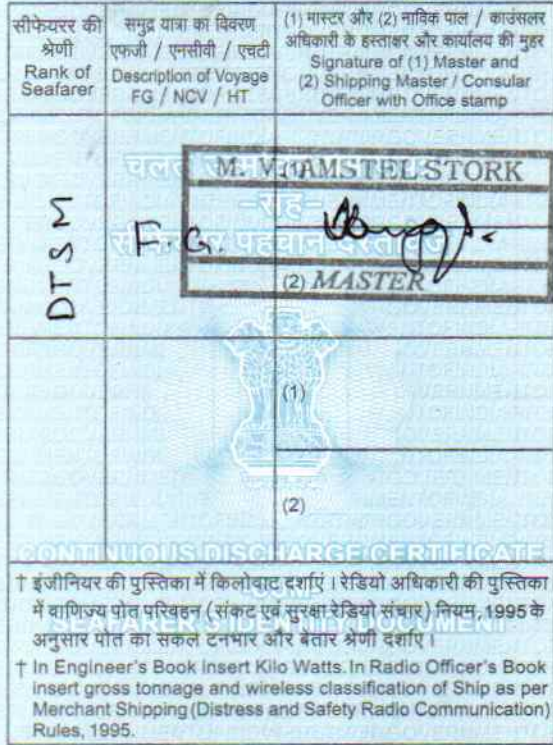 सीफेयरर की
श्रेणी
Rank of
Seafarer
समुद्र यात्रा का विवरण
एफजी / एनसीवी / एचटी
Description of Voyage
FG / NCV / HT
(1) मास्टर और (2) नाविक पाल / काउंसलर
अधिकारी के हस्ताक्षर और कार्यालय की मुहर
Signature of (1) Master and
(2) Shipping Master / Consular
Officer with Office stamp
DTSM
F.G.
M. V. AMSTELSTORK
(2) MASTER
(1)
(2)
CONTINUOUS DISCHARGE CERTIFICATE
SEAFARER'S IDENTITY DOCUMENT
† इंजीनियर की पुस्तिका में किलोवाट दर्शाएं । रेडियो अधिकारी की पुस्तिका
में वाणिज्य पोत परिवहन (संकट एवं सुरक्षा रेडियो संचार) नियम, 1995 के
अनुसार पोत का सकल टनभार और बेतार श्रेणी दर्शाए ।
† In Engineer's Book insert Kilo Watts. In Radio Officer's Book
insert gross tonnage and wireless classification of Ship as per
Merchant Shipping (Distress and Safety Radio Communication)
Rules, 1995.